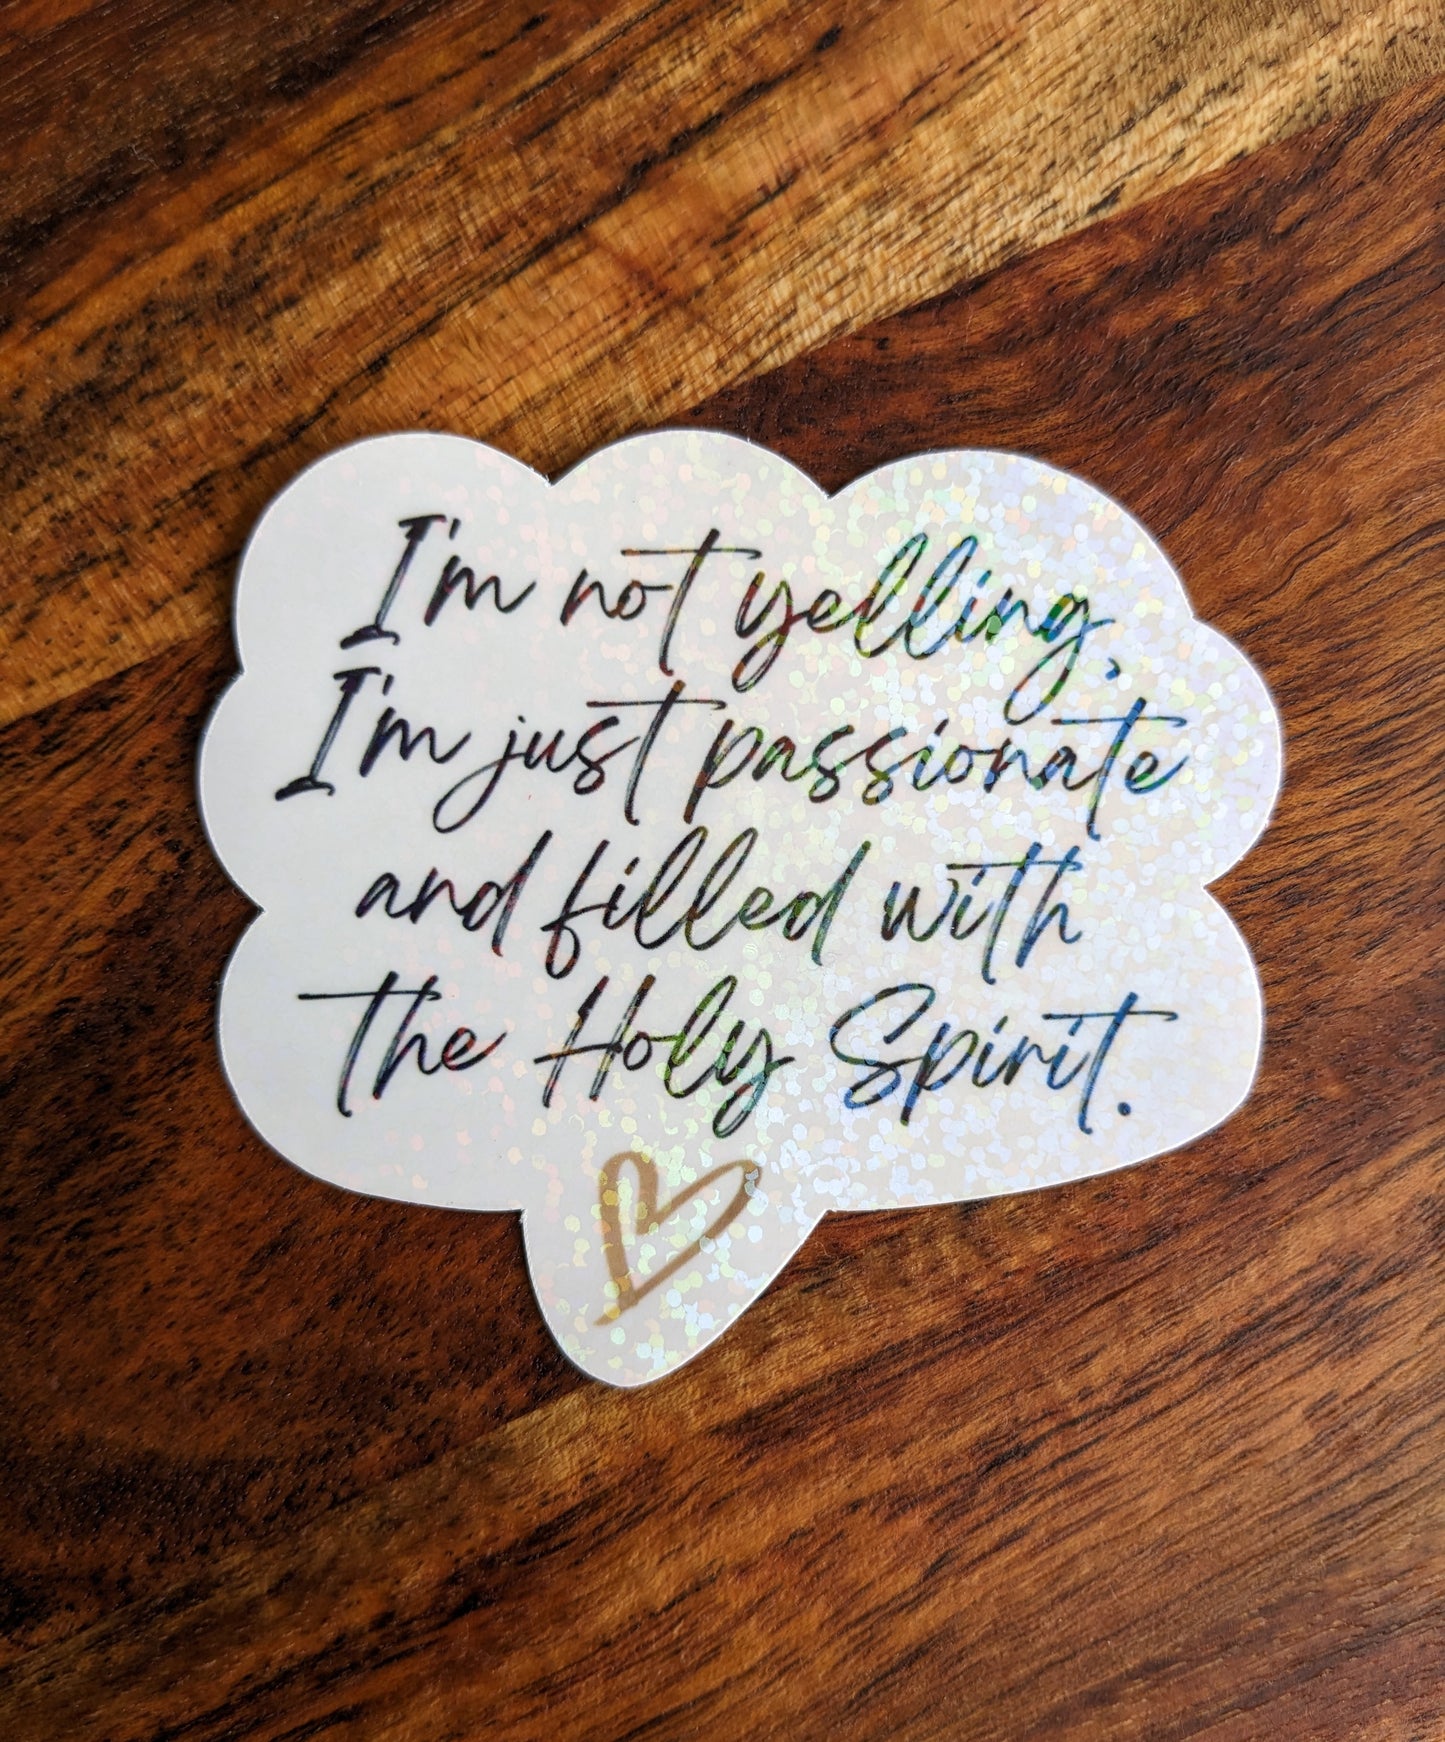 I'm not yelling,
I'm just passionate
and filled with
the Holy Spirit.